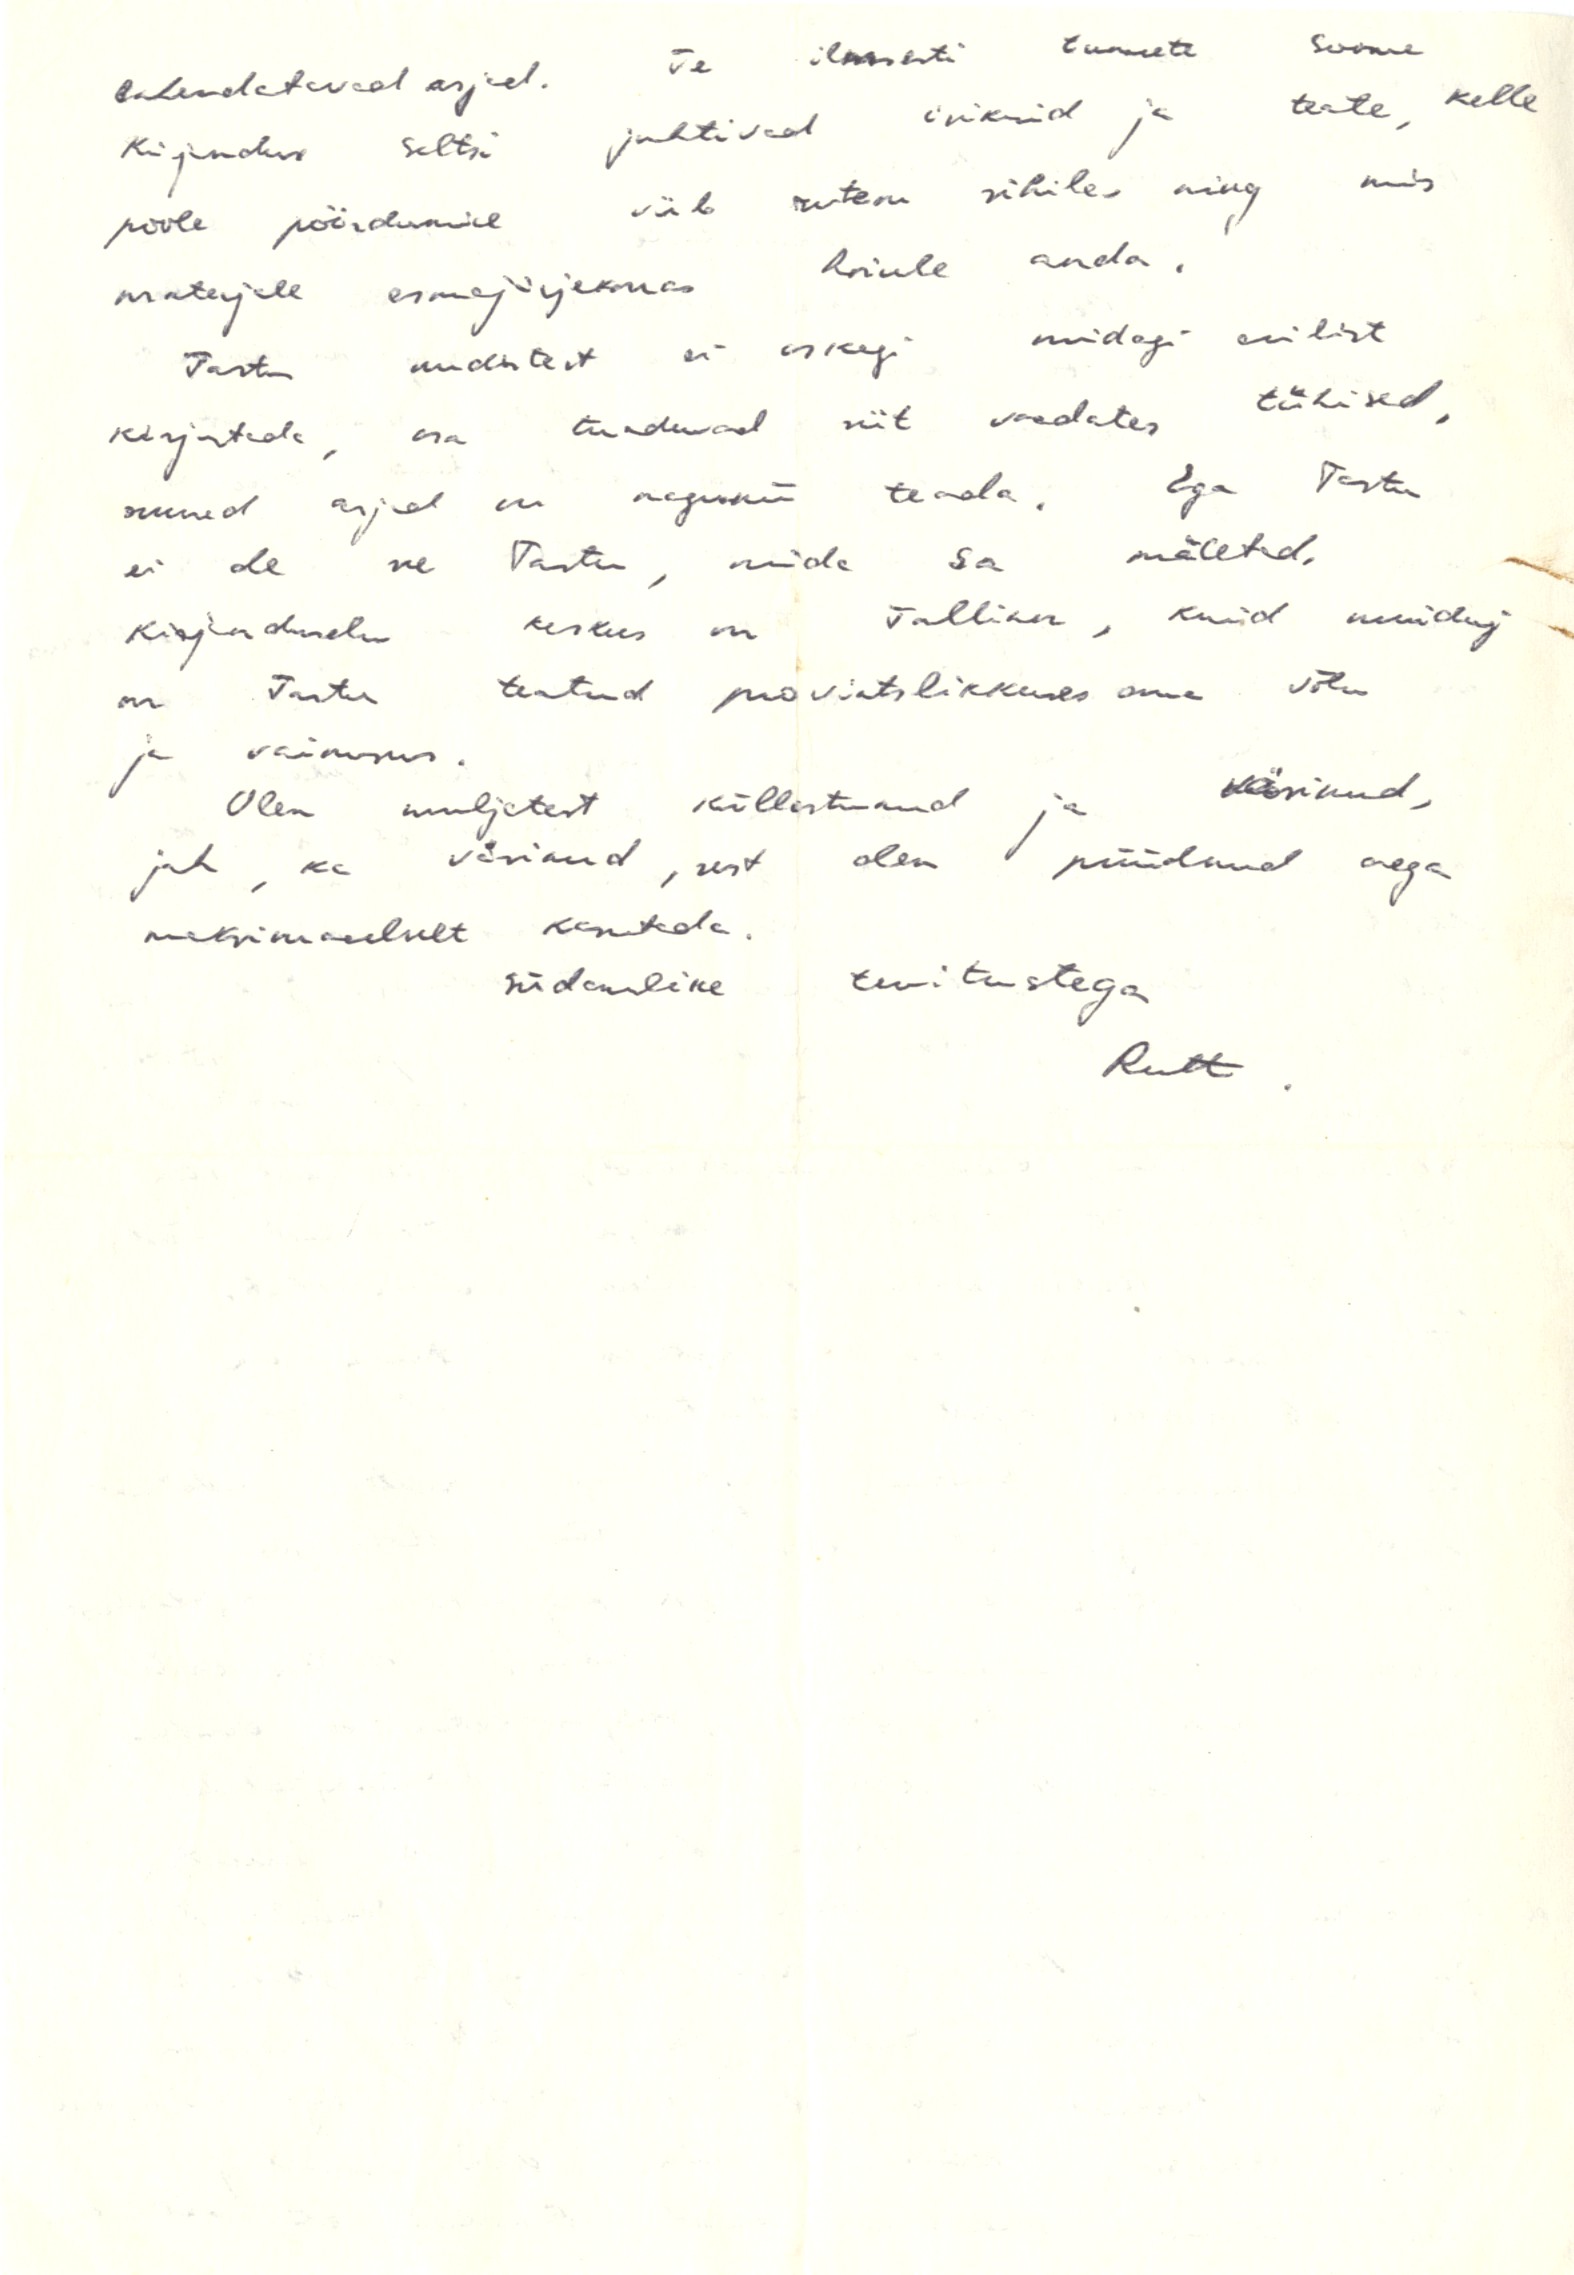 lahendatavad asjad. Te ilmsesti tunnete Soome
Kirjanduse Seltsi juhtivad isikuid ja teate, kelle
poole pöördumine viib rutem sihile ning mis
materjale esmajärjekorras hoiule anda.
Tartu uudistest ei oskagi midagi erilist
kirjutada, osa tunduvad siit vaadates tühised,
suured asjad on nagunii teada. Ega Tartu
ei ole see Tartu, mida Sa mäletad.
Kirjanduselu keskus on Tallinn, kuid muidugi
on Tartu teatud proviatslikkuses oma võlu
ja vaimsus.
Olen muljetest küllastunud ja väsinud,
jah, ka väsinud, sest olen püüdnud aega
maksimaalselt kasutada.
Südamlike tervitustega
Rutt.